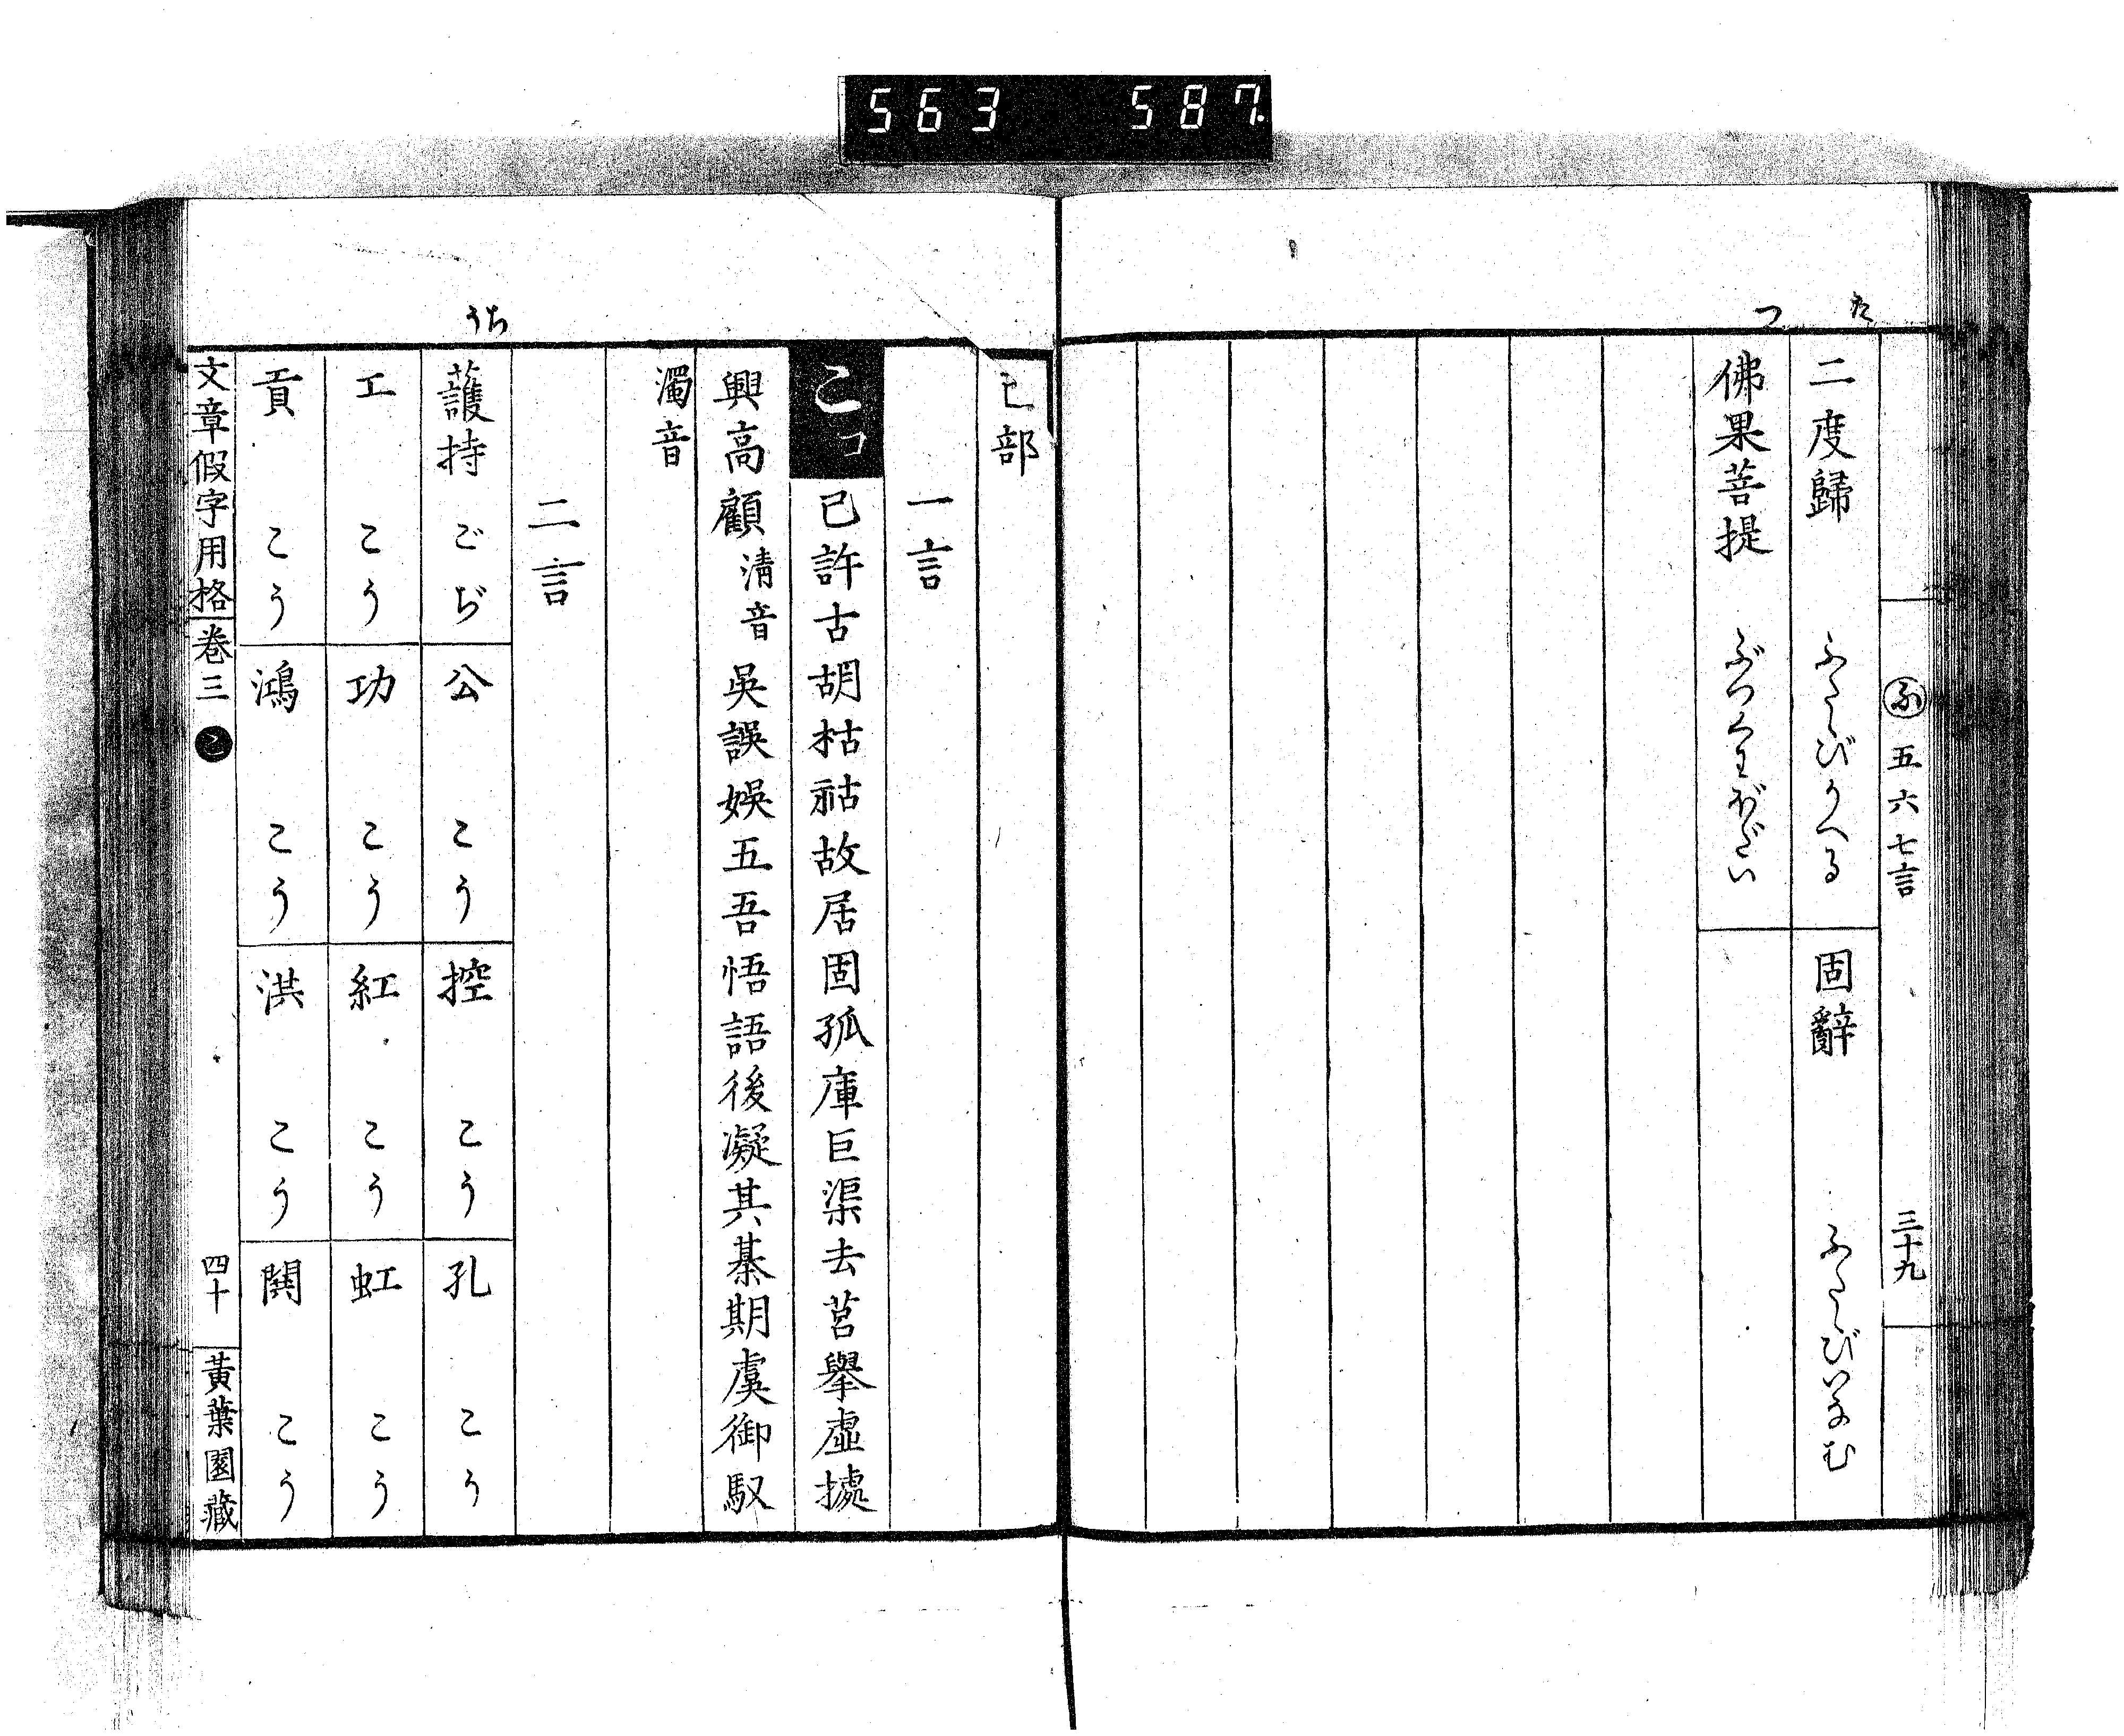 563 587.
た
つ
ふ 五六七言 三十九
二度歸 ふたゝびかへる
固辭 ふたゝびいなむ
佛果菩提 ぶつくわぼだい
己部
一言
こコ 己許古胡枯祜故居固孤庫巨渠去莒擧虛據
興高顧 清音 吳誤娛五吾悟語後凝其棊期虞御馭
濁音
二言
うち
護持 ごぢ
公 こう
控 こう
孔 こう
工 こう
功 こう
紅 こう
虹 こう
貢 こう
鴻 こう
洪 こう
鬨 こう
文章假字用格 卷三 こ 四十 黃葉園藏